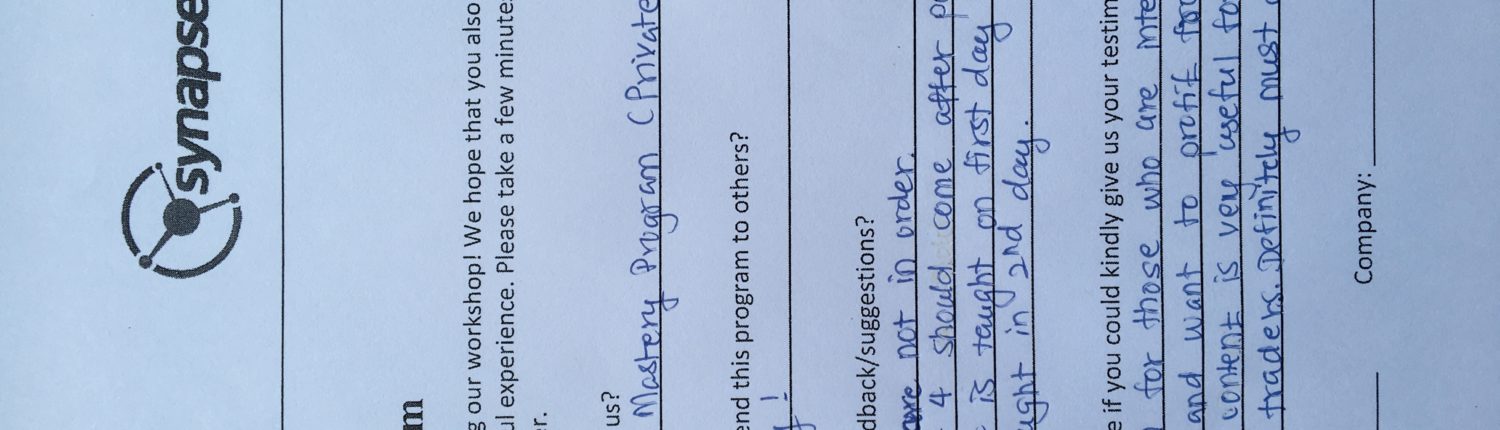 synapse
m
g our workshop! We hope that you also
ul experience. Please take a few minute
er.
us?
Mastery Program (Private
end this program to others?
!
dback/suggestions?
are not in order.
4 should come after
is taught on first day
ught in 2nd day.
e if you could kindly give us your testim
for those who are inte
and want to profit
content is very useful fo
traders. Definitely must
Company: